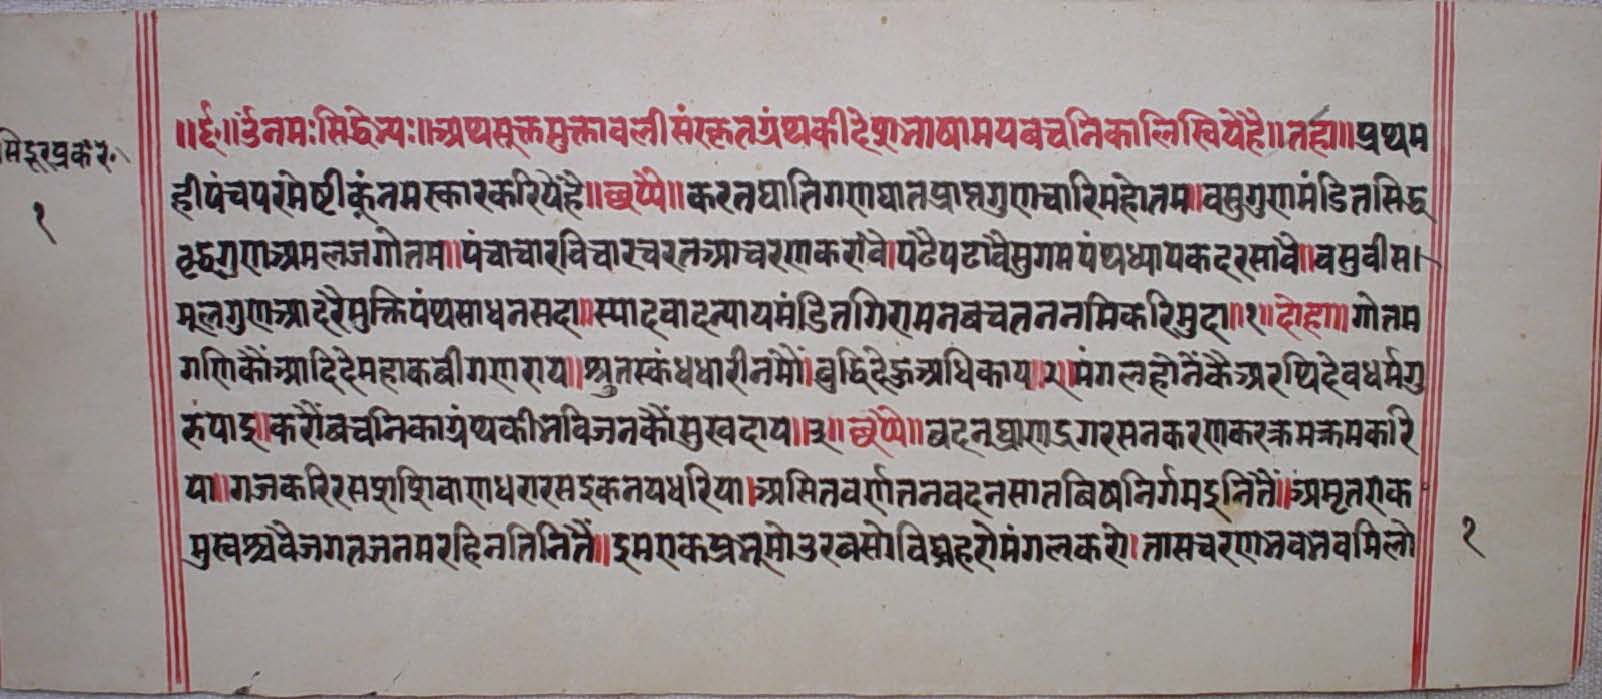 ॥ र्द०॥ र्उनमःसिद्धेभ्यः॥ अथसूक्तमुक्तावलीसंस्कृतग्रंथकीदेशभाषामयबचनिकालिखियेहै॥ तहां॥ प्रथम
सिंदूरप्रकर०
१
हीपंचपरमेष्टीकूंनमस्कारकरियेंहै॥ छप्पै॥ करतघातिगणघातप्राप्तगुणचारिमहोतम॥ वसुगुणमंडितसिद्ध
वृद्धगुणअमलजगोतम॥ पंचाचारविचारचरतआचरणकरांवै। पढैपढावैसुगमपंथध्यापकदरसावै॥ वसुवीस।
मूलगुणआदरैमुक्तिपंथसाधनसदा॥ स्पादवादन्यायमंडितगिरामनबचतननमिकरिमुदा॥१॥ दोहा॥ गोतम
गणिकौंआदिदेमहाकबीगणराय॥ श्रुतस्कंधधारीनमौं। बुद्धिदेहुअधिकाय।२। मंगलहोतैंकैअरथिदेवधर्मगु
रुंपाइ। करौंबचनिकाग्रंथकीभविजनकौंसुखदाय॥३॥ छप्पै॥ बदनघ्राणद्रगरसनकरणकरक्रमक्रमकरि
या॥ गजकरिरसशशिवाणधरारसइकतयधरिया। असितवर्णतनवदनसातबिषनिर्गमइनितैं॥ अमृतएक
मुखश्चवैजगतजतमरहिनतिनितैं॥ इमएकप्रभूमोउरबसोविघ्नहरोमंगलकरो। तासचरणभवभवमिलो
१